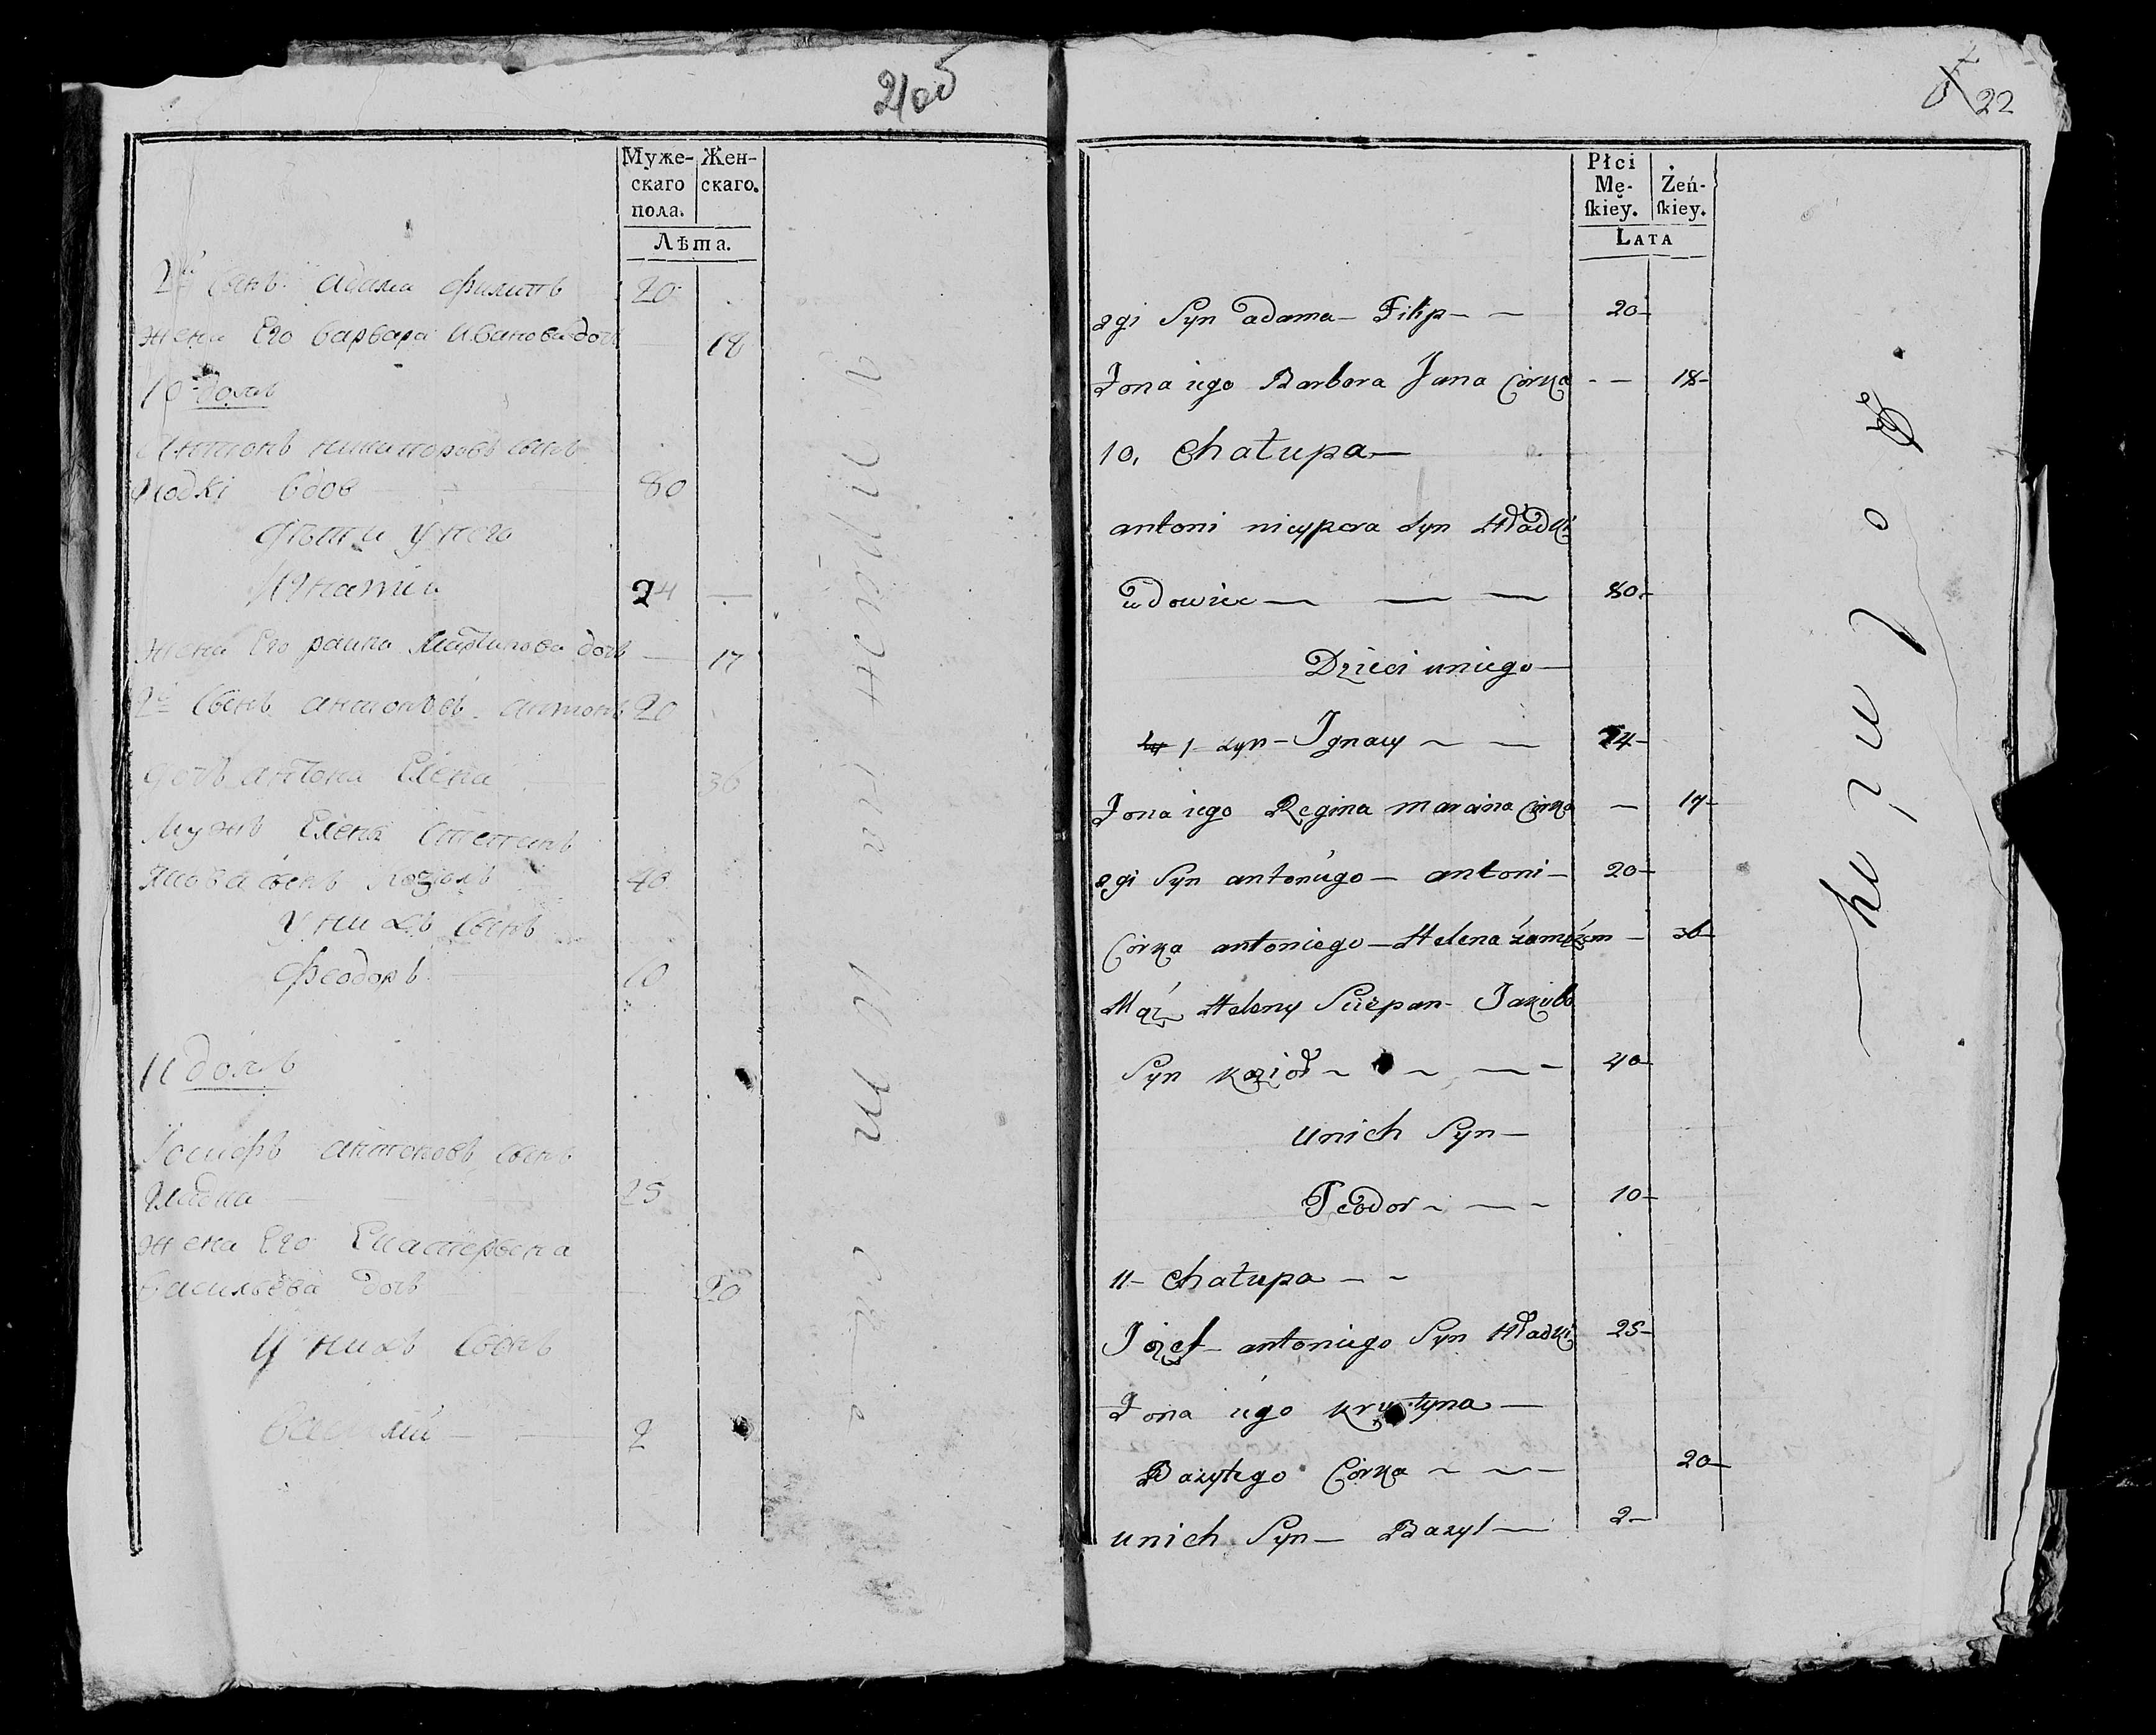 21об
Муже-
скаго
пола.
Жен-
скаго.
Лѣта.
2й Сынъ Адама Филипъ 20
жена Его Варвара Иванова дочь 18
10 домъ
Антонъ никипоровъ сынъ
вдов 80
дѣти у него
Игнатіи 24
жена Его раина Мартинова дочь 17
2й Сынъ антоновъ антонъ 20
дочь антона Елена 36
Мужъ Елена Степанъ
Якова сынъ Козіолъ 40
У нихъ Сынъ
Феодоръ 10
11 домъ
Іосифъ антоновъ сынъ
Гладки 25
жена Его
васильева дочь 20
У нихъ Сынъ
василій 2
22
Płci
Mę-
skiey.
Żeń-
skiey.
LATA
2gi Syn adama – Filip – – 20 –
Zona iego Barbara Jana Córka – – 18 –
10, Chałupa —
antoni nicypora Syn Hładki
wdowiec — — — 80 –
Dzieci uniego —
1 – Syn – Ignacy – — 24 –
Zona iego Regina marcina Córka — 17 –
2gi Syn antoniego – antoni – 20 –
Córka antoniego – Helena zamężem – 36 –
Mąż Heleny Sciepan – Jakuba
Syn kozioł – – — – 40 –
unich Syn –
Teodor – — – 10 –
11 – Chałupa – –
Józef – antoniego Syn Hładki 25 –
Zona iego krystyna —
Bazylego Córka – – — 20 –
unich Syn – Bazyl — 2 –